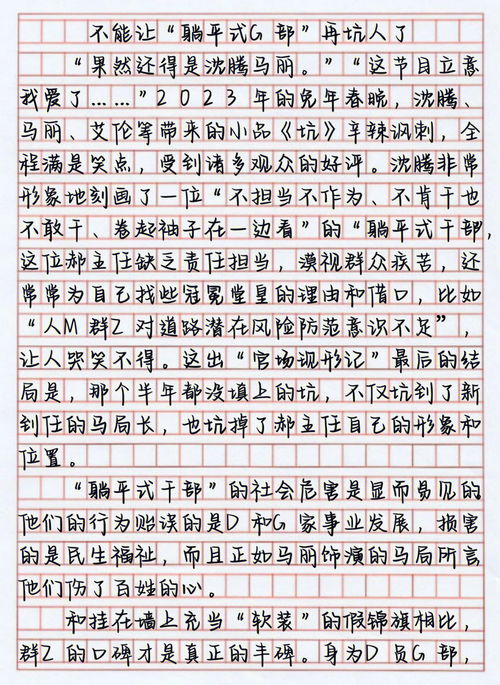 不能让“躺平式G 部”再坑人了
“果然还得是沈腾马丽。”“这节目立意
我爱了……”2023年的兔年春晚，沈腾、
马丽、艾伦等带来的小品《坑》辛辣讽刺，全
程满是笑点，受到诸多观众的好评。沈腾非常
形象地刻画了一位“不担当不作为、不肯干也
不敢干、卷起袖子在一边看”的“躺平式干部，
这位郝主任缺乏责任担当，漠视群众疾苦，还
常常为自己找些冠冕堂皇的理由和借口，比如
“人M 群Z 对道路潜在风险防范意识不足”，
让人哭笑不得。这出“官场现形记”最后的结
局是，那个半年都没填上的坑，不仅坑到了新
到任的马局长，也坑掉了郝主任自己的形象和
位置。
“躺平式干部”的社会危害是显而易见的
他们的行为贻误的是D 和G 家事业发展，损害
的是民生福祉，而且正如马丽饰演的马局所言
他们伤了百姓的心。
和挂在墙上充当“软装”的假锦旗相比，
群Z 的口碑才是真正的丰碑。身为D 员G 部，